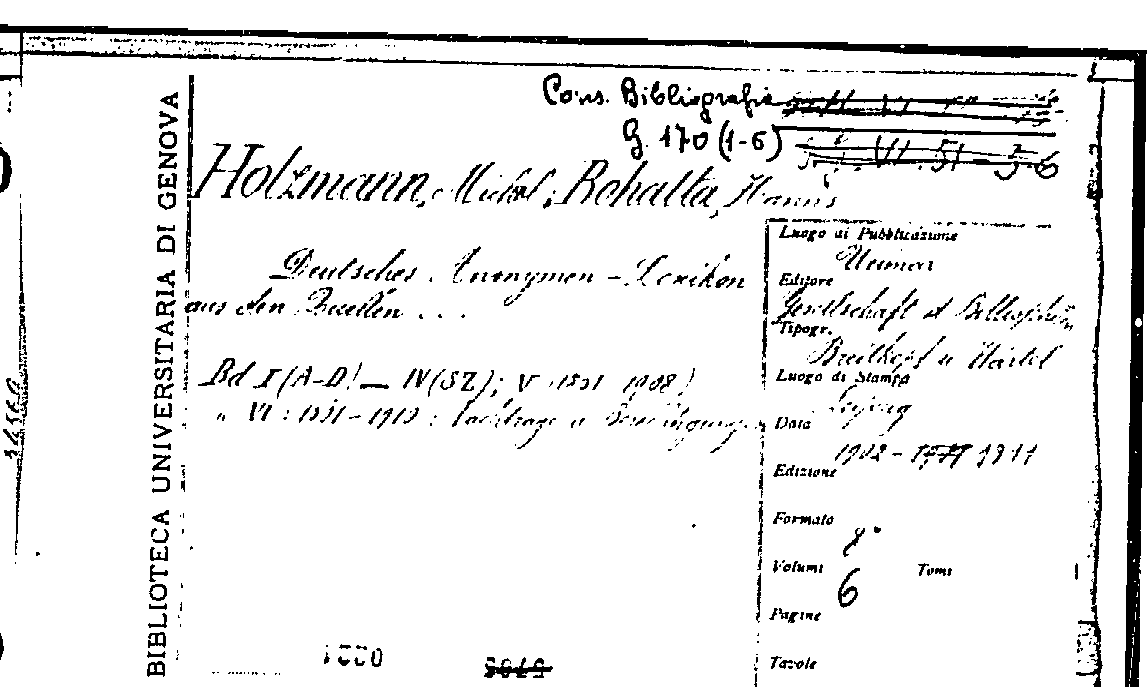 BIBLIOTECA UNIVERSITARIA DI GENOVA
Cons. Bibliografia
G. 170 (1-6)
VI. 51 - 5-6
Holzmann, Michel; Bohatta, Hanns
Deutsches Anonymen-Lexikon
aus den Quellen ...
Bd I (A-D) — IV (SZ); V 1851 1908)
" VI: 1501-1910: Nachträge u
Luogo di Pubblicazione
Weimar
Editore
Gesellschaft d Bibliophilen
Tipogr.
Breitkopf u Härtel
Luogo di Stampa
Leipzig
Data
1902 - 1911
Edizione
Formato
8°
Volumi 6 Tomi
Pagine
Tavole